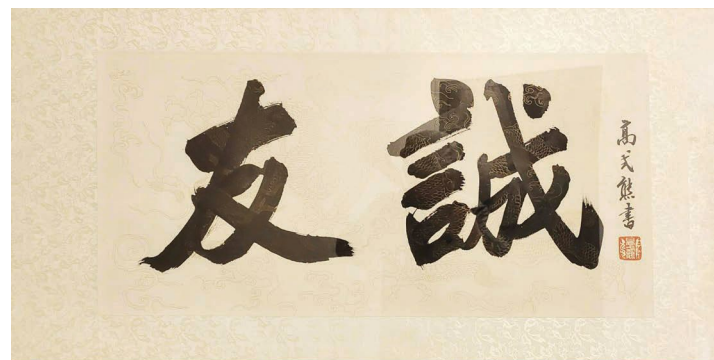 友誠
高式熊書